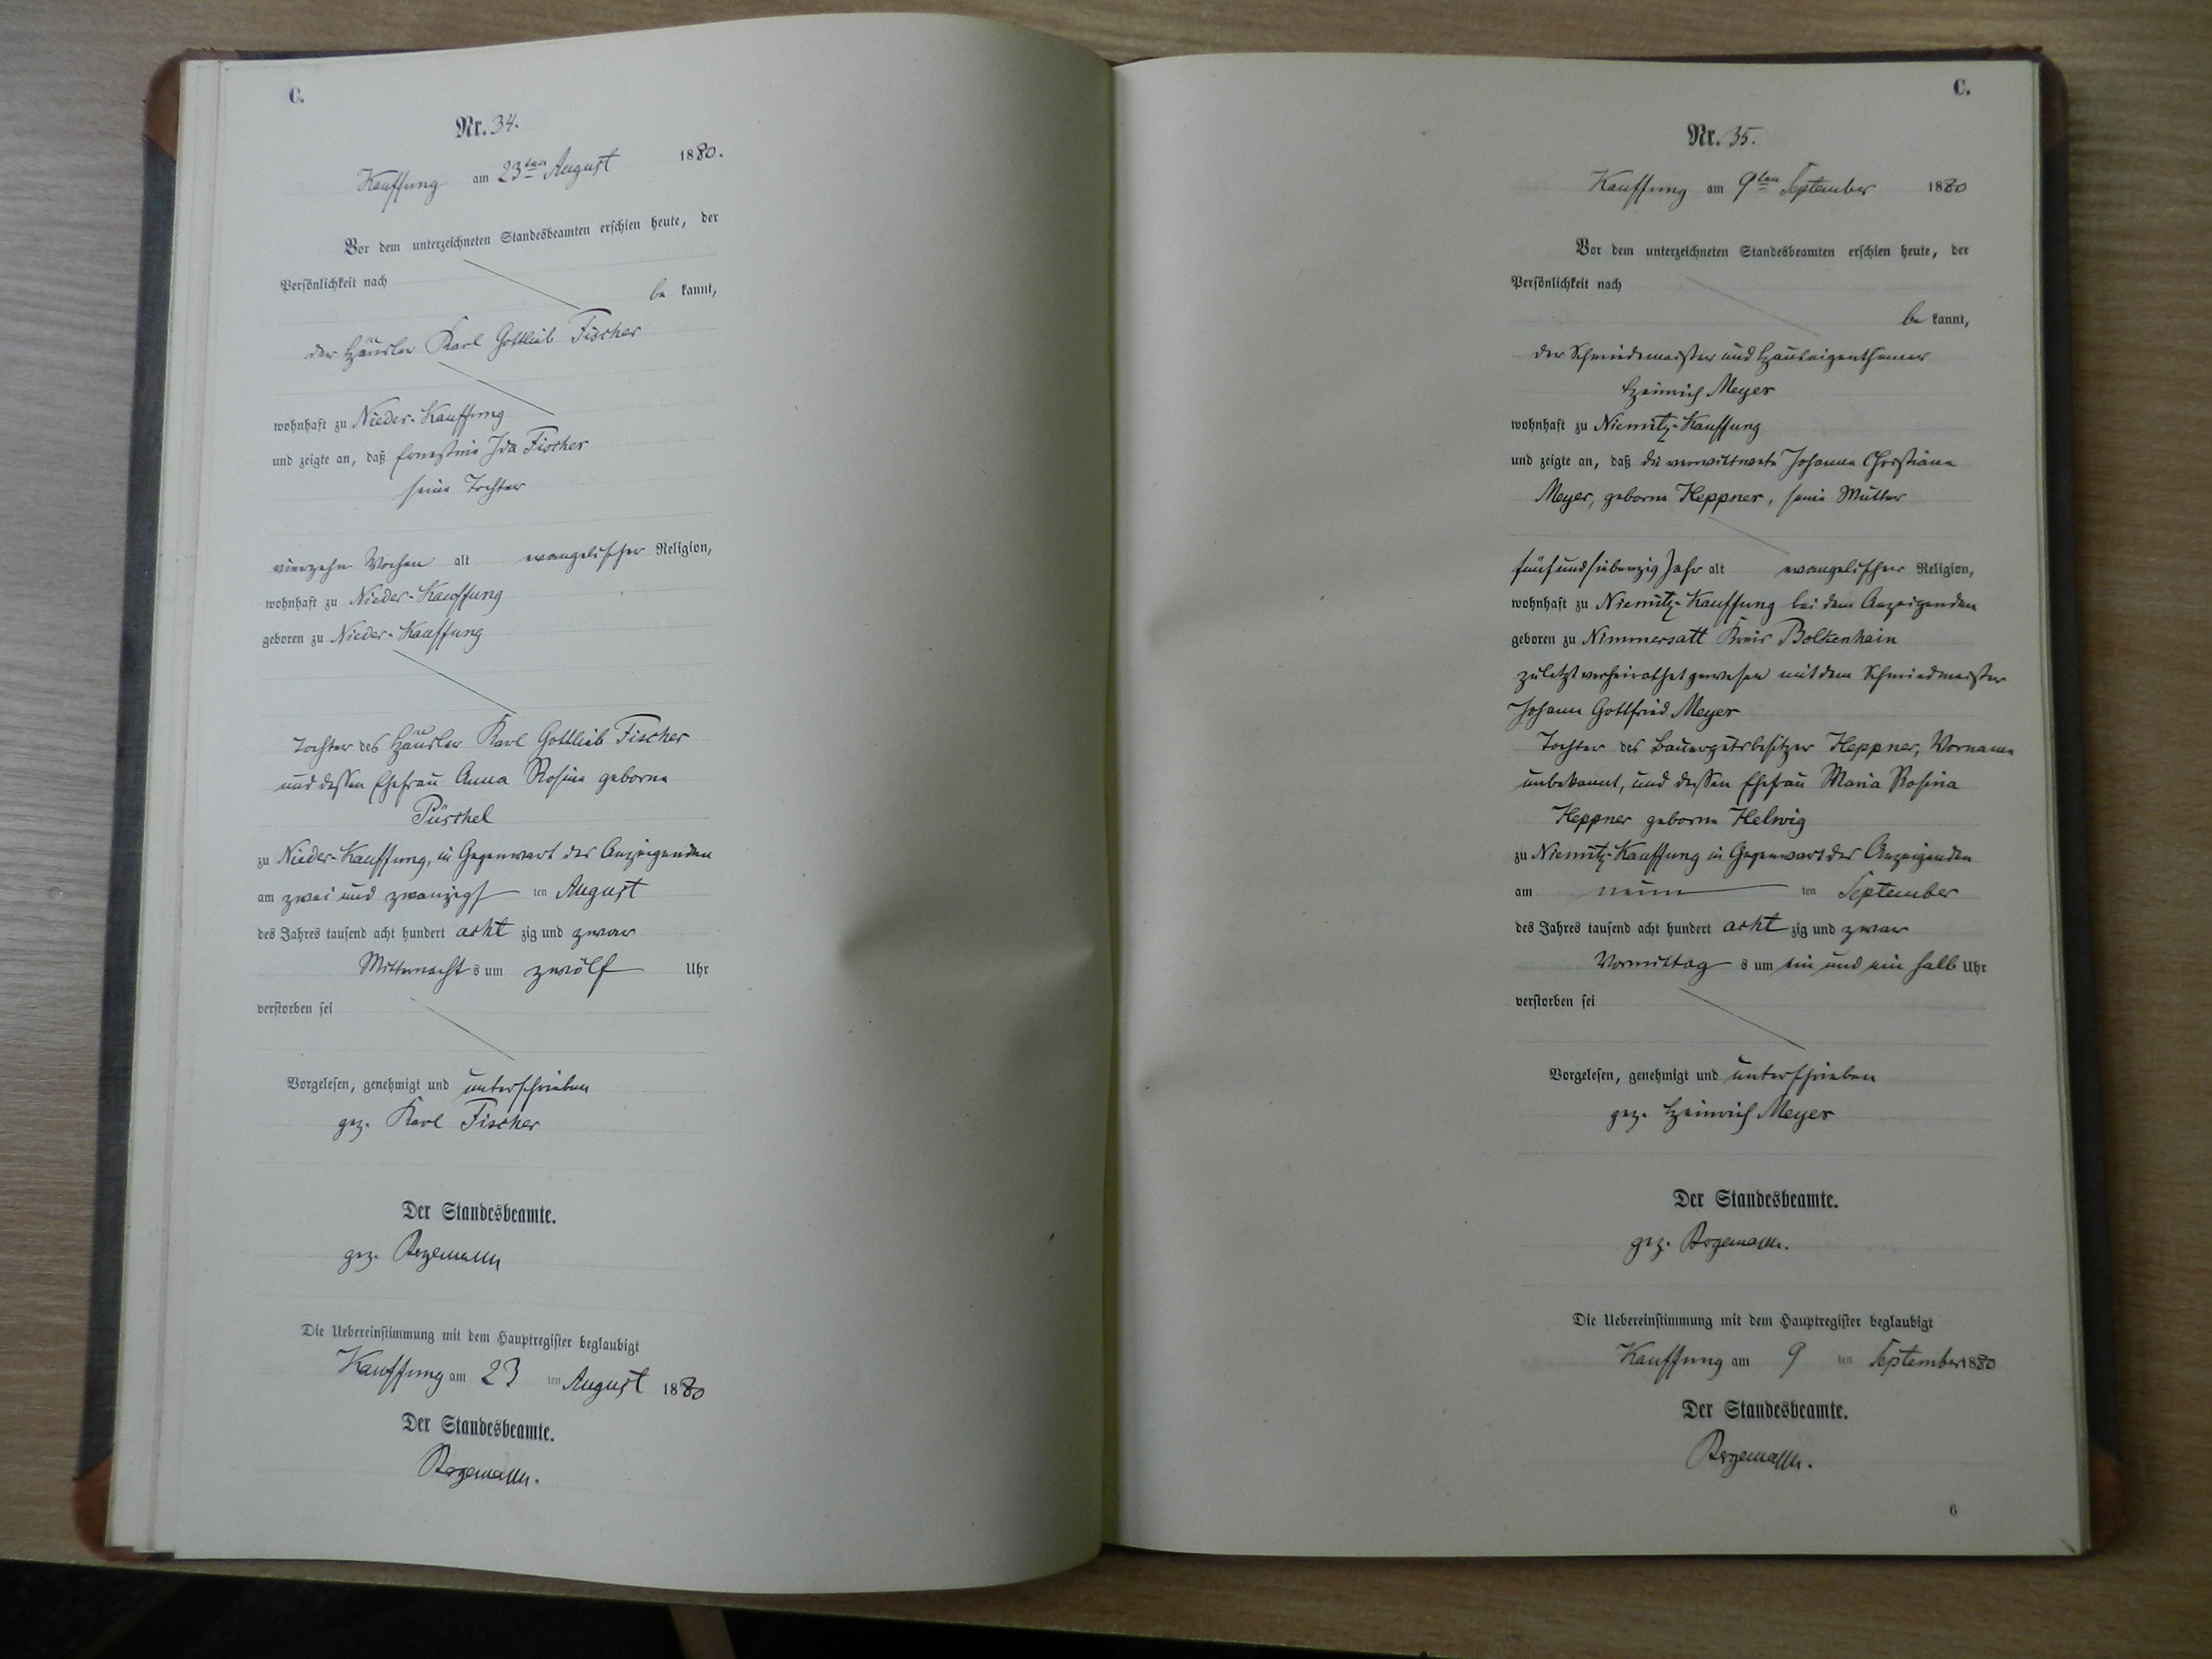 C.
Nr. 34.
Kauffung am 23ten August 1880.
Vor dem unterzeichneten Standesbeamten erschien heute, der
Persönlichkeit nach
be kannt,
der Häusler Karl Gottlieb Fischer
wohnhaft zu Nieder-Kauffung
und zeigte an, daß Ernestine Ida Fischer
seine Tochter
vierzehn Wochen alt evangelischer Religion,
wohnhaft zu Nieder-Kauffung
geboren zu Nieder-Kauffung
Tochter des Häusler Karl Gottlieb Fischer
und dessen Ehefrau Anna Rosina geborne
Püschel
zu Nieder-Kauffung, in Gegenwart des Anzeigenden
am zwei und zwanzigs ten August
des Jahres tausend acht hundert acht zig und zwar
Mitternacht s um zwölf Uhr
verstorben sei
Vorgelesen, genehmigt und unterschrieben
gez. Karl Fischer
Der Standesbeamte.
gez. Bergemann
Die Uebereinstimmung mit dem Hauptregister beglaubigt
Kauffung am 23 ten August 1880
Der Standesbeamte.
Bergemann.
C.
Nr. 35.
Kauffung am 9ten September 1880
Vor dem unterzeichneten Standesbeamten erschien heute, der
Persönlichkeit nach
be kannt,
der Schmiedemeister und Hauseigenthümer
Heinrich Meyer
wohnhaft zu Niemitz-Kauffung
und zeigte an, daß die verwittwete Johanne Christiane
Meyer, geborne Heppner, seine Mutter
fünf und siebenzig Jahr alt evangelischer Religion,
wohnhaft zu Niemitz-Kauffung bei dem Anzeigenden
geboren zu Nimmersatt Kreis Bolkenhain
zuletzt verheirathet gewesen mit dem Schmiedmeister
Johann Gottfried Meyer
Tochter des Bauergutsbesitzer Heppner, Vorname
unbekannt, und dessen Ehefrau Maria Rosina
Heppner geborne Helwig
zu Niemitz-Kauffung in Gegenwart des Anzeigenden
am neun ten September
des Jahres tausend acht hundert acht zig und zwar
Vormittag s um ein und ein halb Uhr
verstorben sei
Vorgelesen, genehmigt und unterschrieben
gez. Heinrich Meyer
Der Standesbeamte.
gez. Bergemann.
Die Uebereinstimmung mit dem Hauptregister beglaubigt
Kauffung am 9 ten September 1880
Der Standesbeamte.
Bergemann.
6